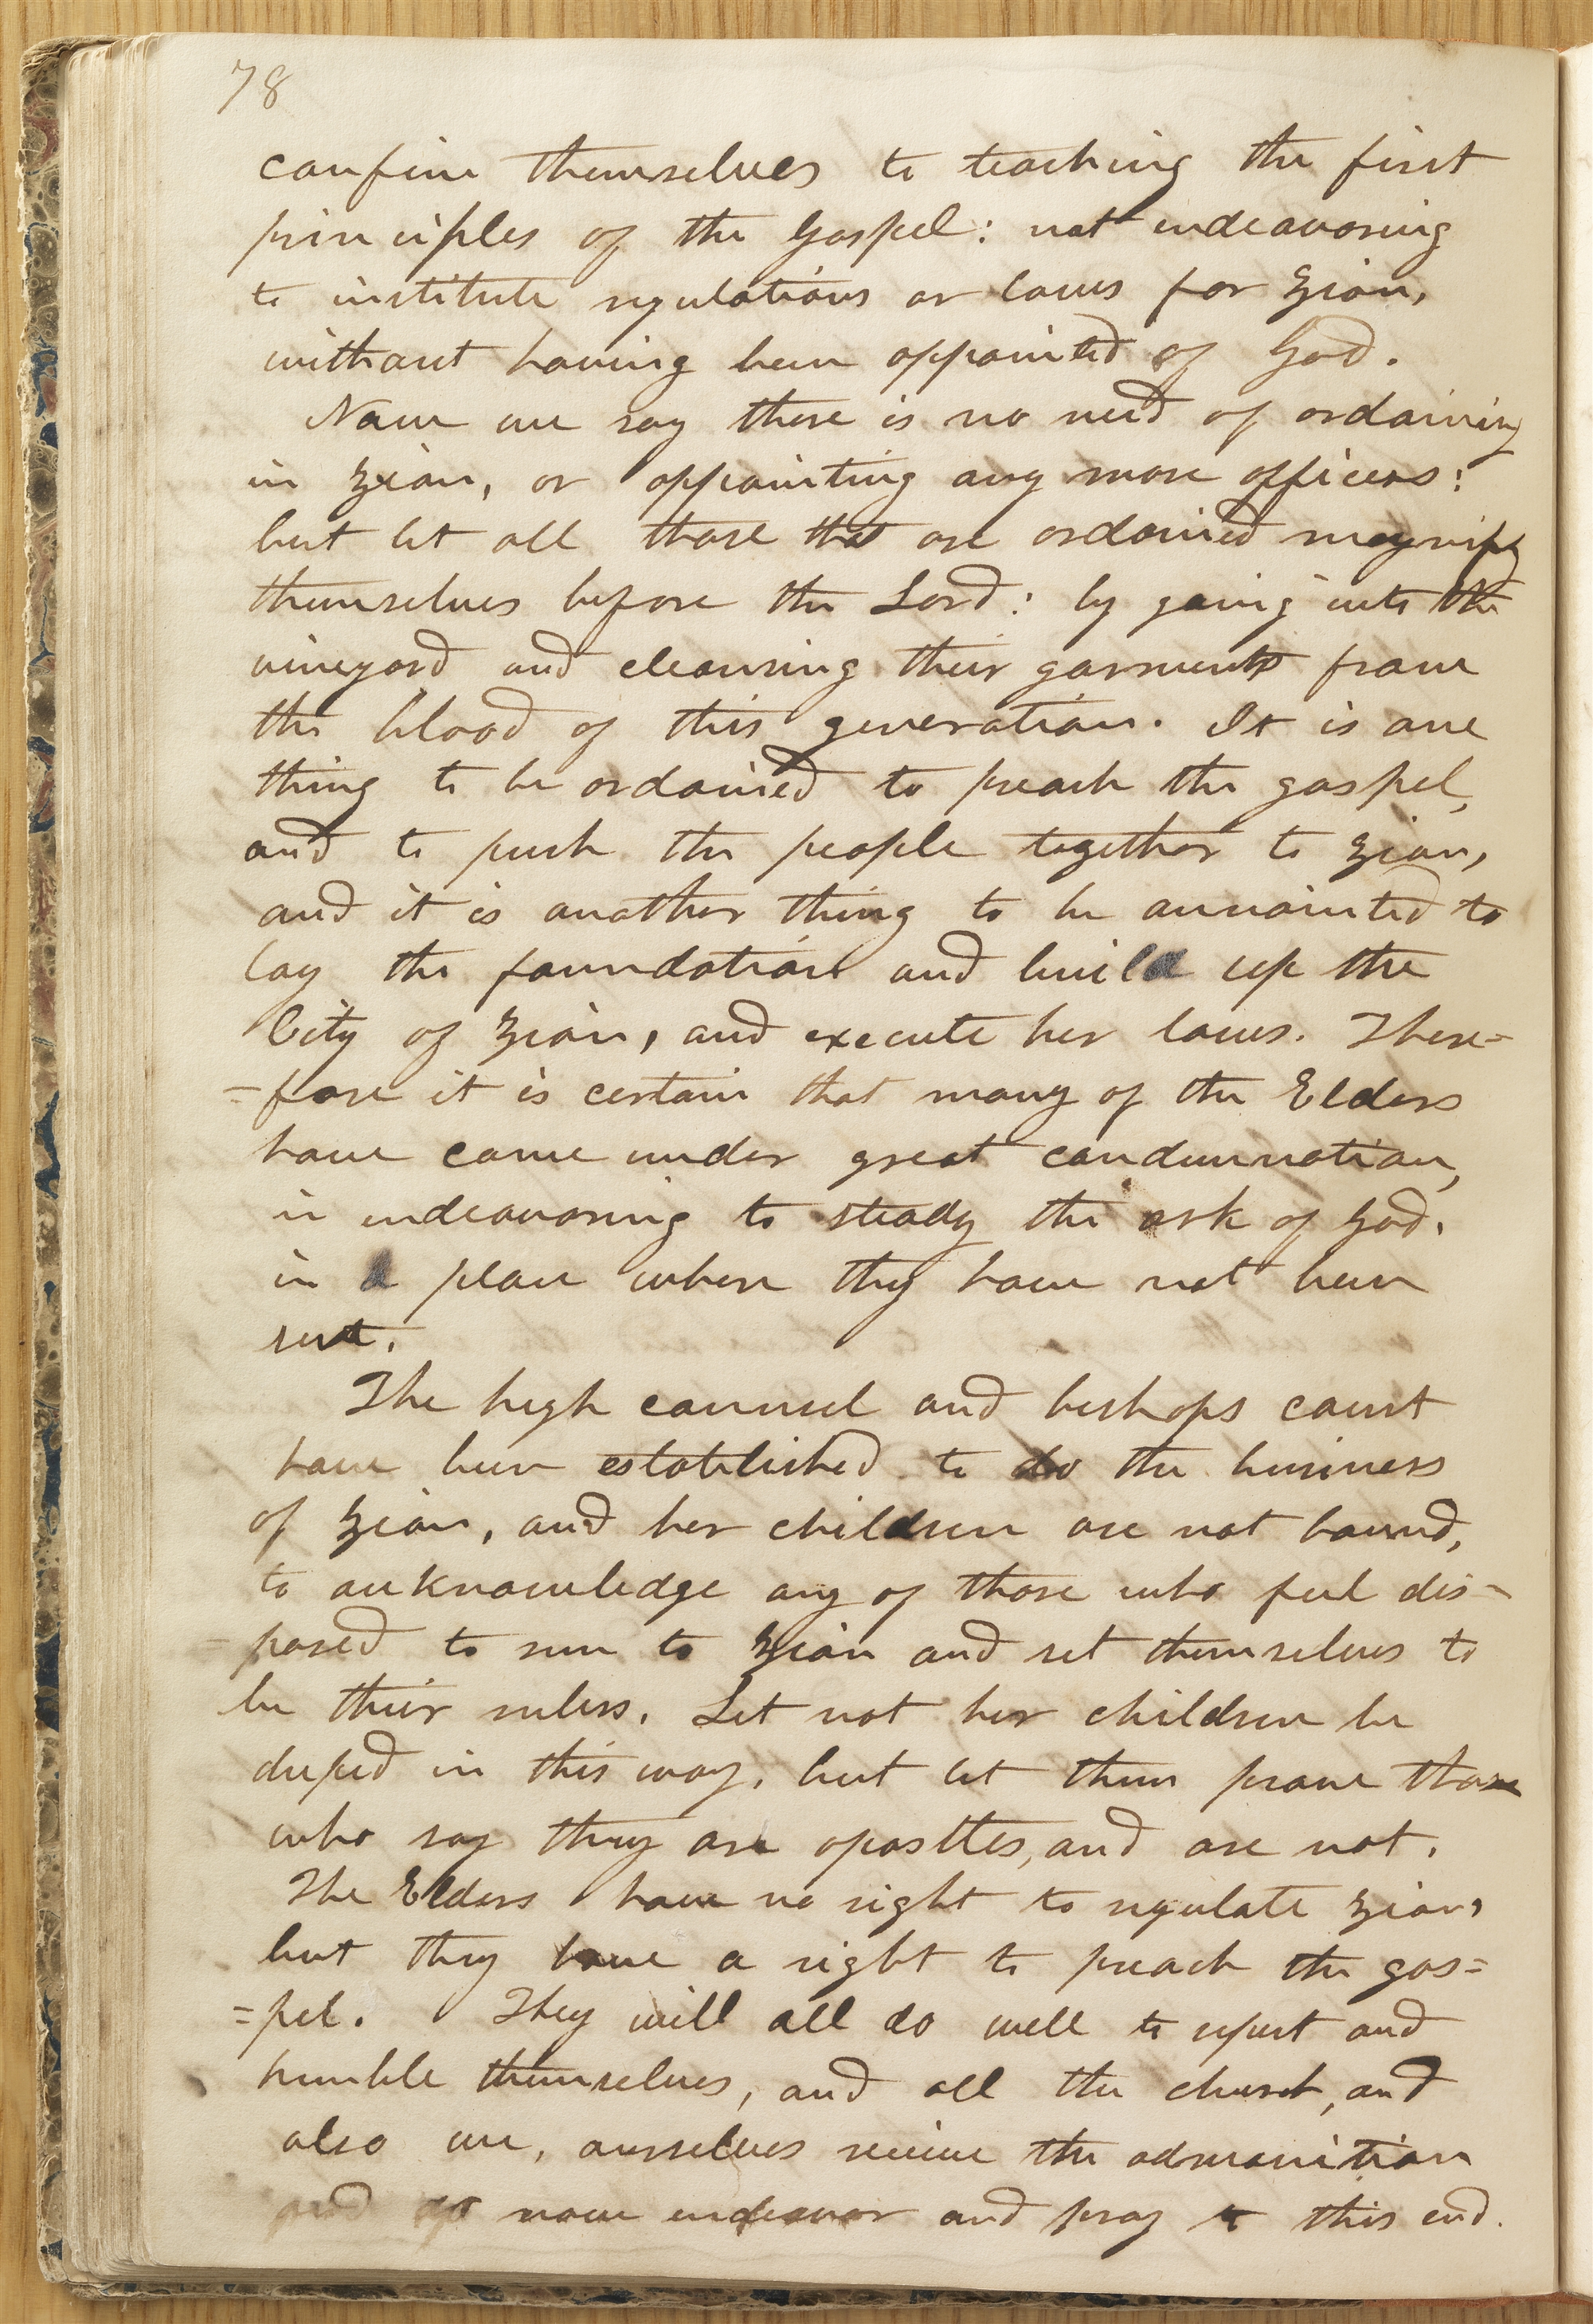 78
confine themselves to teaching the first
principles of the Gospel: not endeavoring
to institute regulations or laws for Zion,
without having been appointed of God.
Now we say there is no need of ordaining
in Zion, or appointing any more officers:
but let all those that are ordained magnify
themselves before the Lord: by going into the
vineyard and cleansing their garments from
the blood of this generation. It is one
thing to be ordained to preach the gospel,
and to push the people together to Zion,
and it is another thing to be annointed to
lay the foundation and build up the
City of Zion, and execute her laws. There=
=fore it is certain that many of the Elders
have come under great condemnation,
in endeavoring to steady the ark of God.
in a place where they have not been
sent.
The high councel and bishops court
have been established to do the business
of Zion, and her children are not bound,
to acknowledge any of those who feel dis-
-posed to run to Zion and set themselves to
be their rulers. Let not her children be
duped in this way, but let them prove those
who say they are apostles, and are not.
The Elders have no right to regulate Zion,
but they have a right to preach the gos=
=pel. They will all do well to repent and
humble themselves, and all the church, and
also we, ourselves receive the admonition
and do now endeavor and pray to this end.